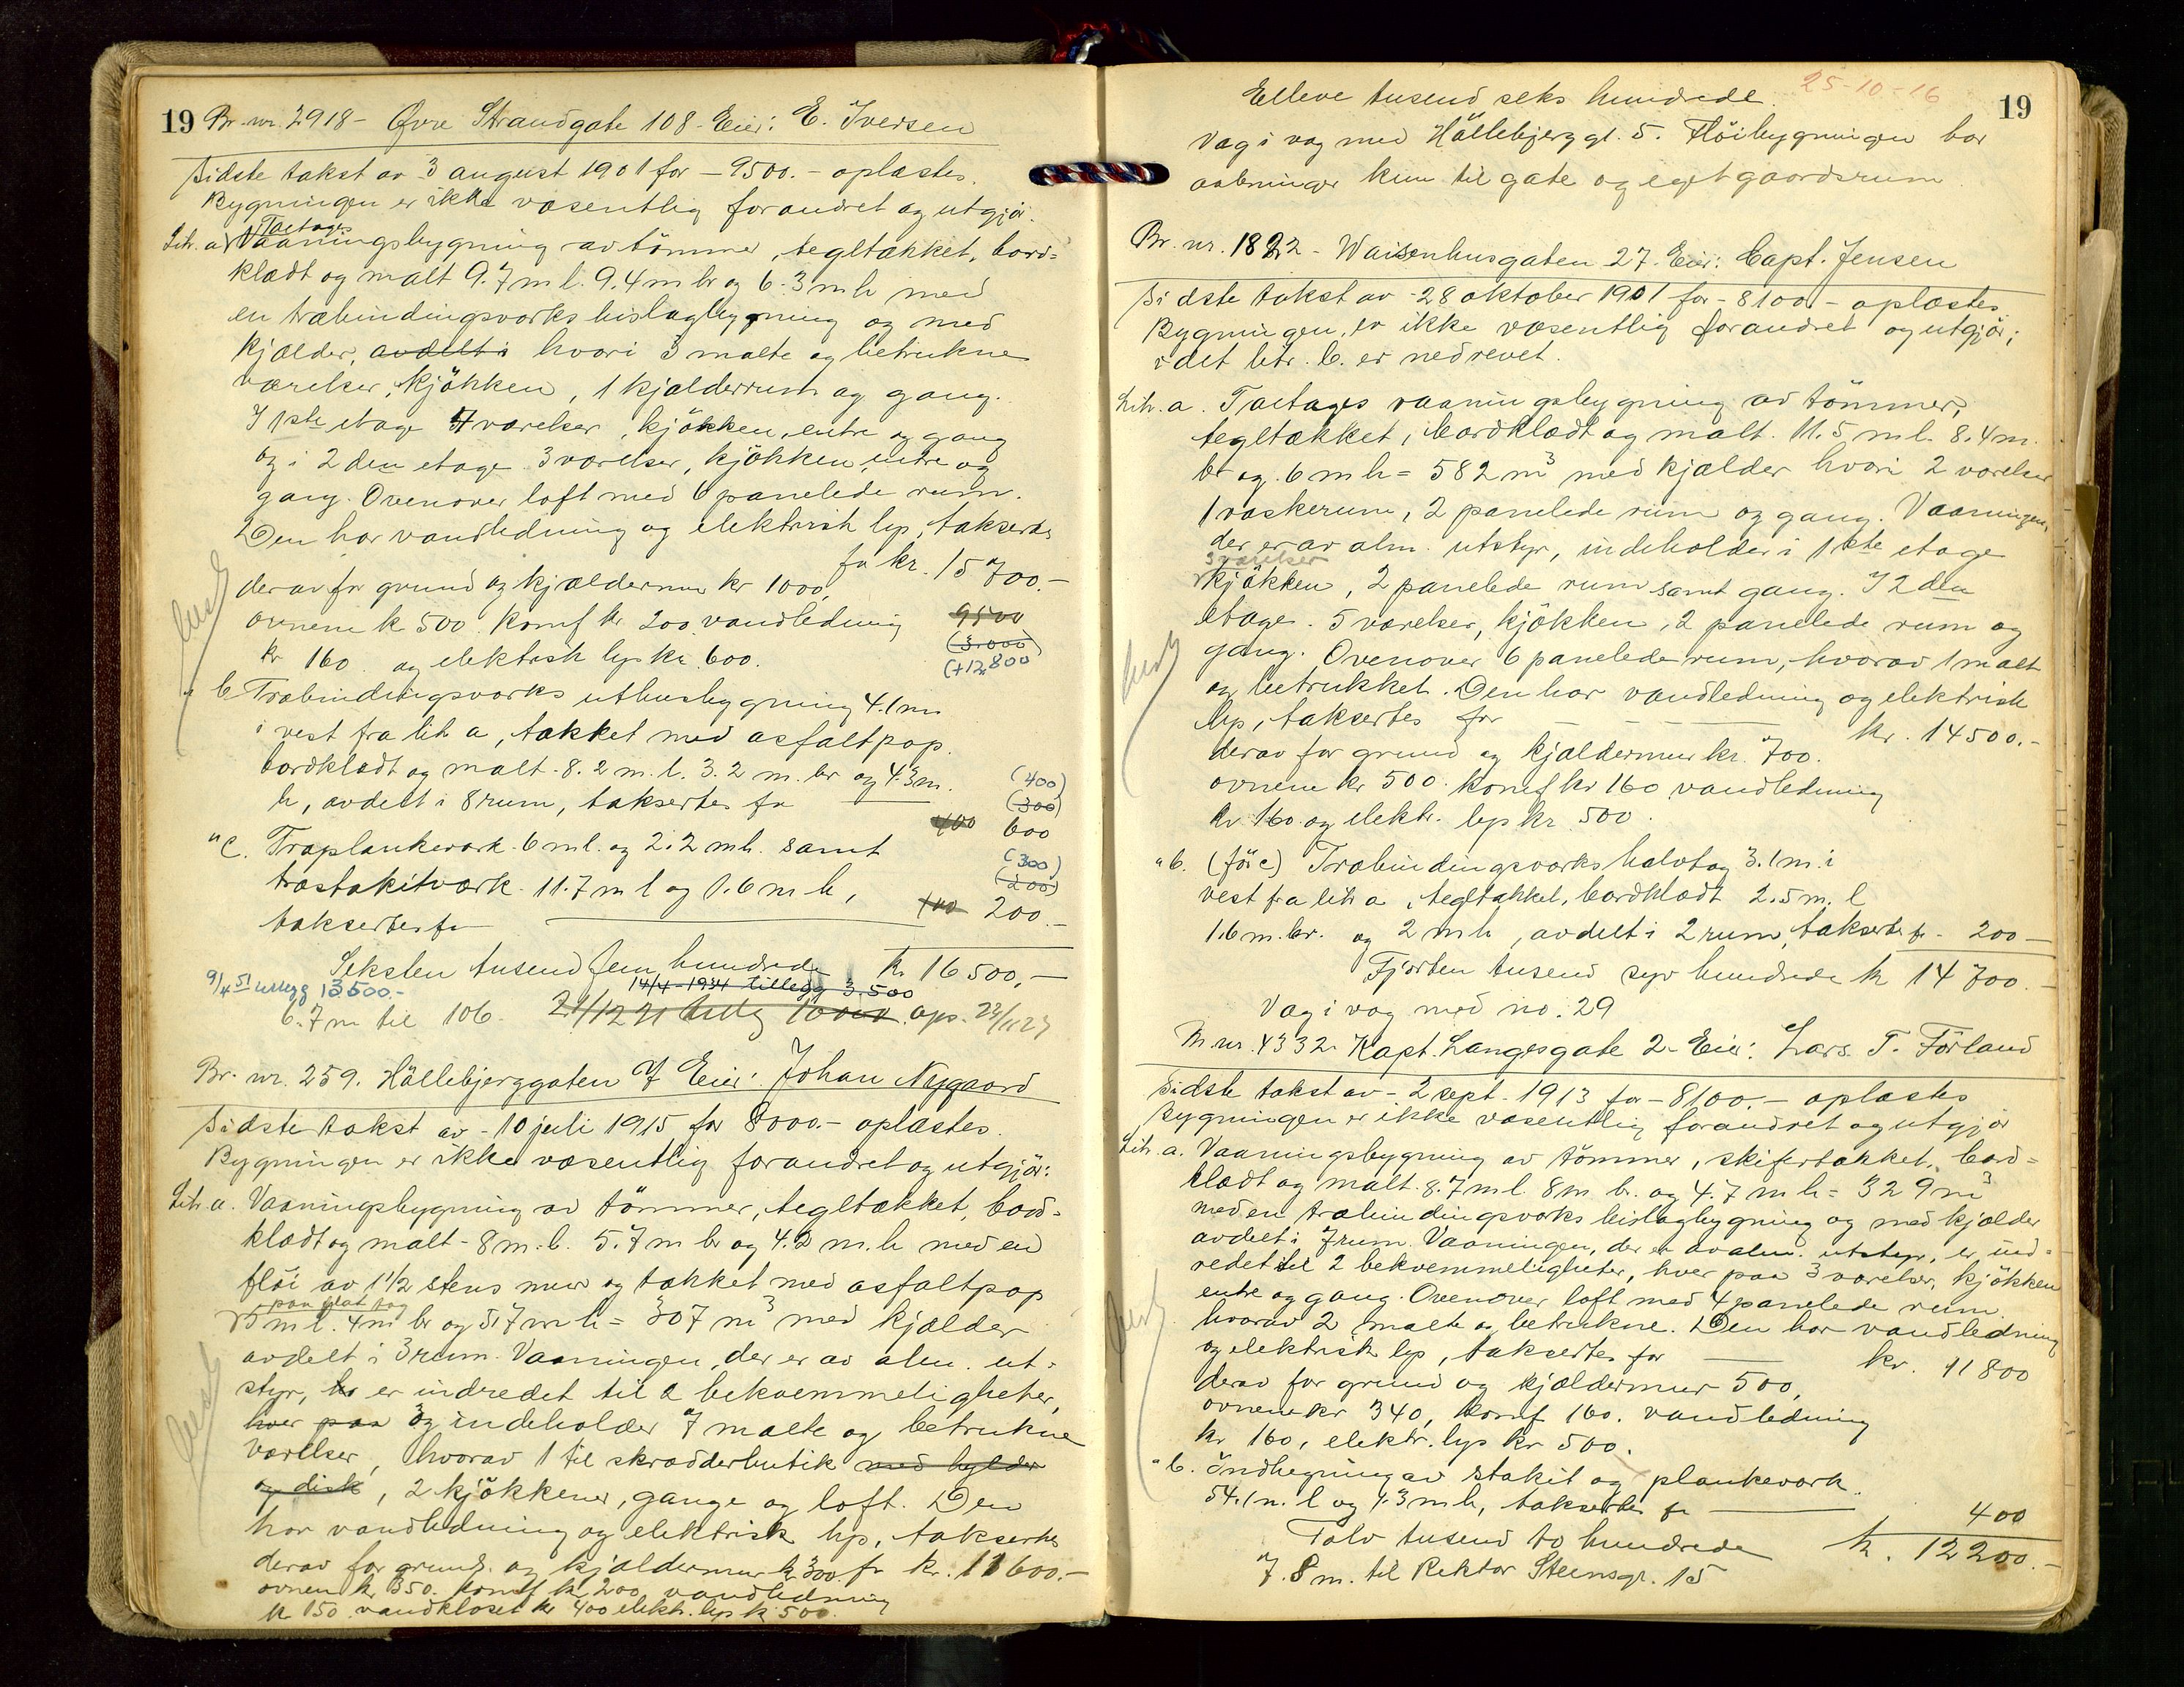 19 Br. nr. 2918 - Øvre Strandgate 108 - Eier: E. Iversen
Sidste takst av 3 august 1901 for - 9500.- oplæstes.
Bygningen er ikke væsentlig forandret og utgjör:
Toetages
Litr. a Vaaningsbygning av tömmer, tegltækket, bord=
klædt og malt 9.7 m l. 9.4 m br og 6.3 m h med
en træbindingsverks bislagbygning og med
kjælder, avdelt i hvori 3 malte og betrukne
værelser, kjökken, 1 kjælderrum og gang.
I 1ste etage 4 værelser, kjökken, entre og gang
og i 2den etage 3 værelser, kjökken, entre og
gang. Ovenover loft med 6 panelede rum.
Den har vandledning og elektrisk lys, takseres
for kr. 15700.-
derav for grund og kjældermur kr 1000,
ovnene k 500. Komf kr 200 vandledning 9500
(3.000)
kr 160. og elektrisk lys kr. 600. (+12,800
" b Træbindingsverks uthusbygning 4.1 m
i vest fra lit a, tækket med asfaltpap.
bordklædt og malt - 8.2 m. l. 3.2 m. br og 4.3 m. (400)
h, avdelt i 8 rum, taksertes for (300)
400 600
" c. Træplankeverk 6 m l. og 2.2 m h. samt (300)
træstakitværk 11.7 m l og 1.6 m h, (200)
taksertes for 100 200.-
Seksten tusend fem hundrede Kr 16500,-
9/4 51 tillegg 13500.- 14/4-1934 tillegg 3.500
6.7 m til 106. 21/12 21 tillg 10000. ops. 23/11 27
Br. nr. 259. Hällebjerggaten 7 Eier: Johan Nygaard
Sidste takst av - 10 juli 1915 for 8000.- oplæstes.
Bygningen er ikke væsentlig forandret og utgjör:
Litr. a. Vaaningsbygning av tömmer, tegltækket, bord=
klædt og malt - 8 m. l. 5.7 m br og 4.2 m. h med en
flöi av 1 1/2 stens mur og tækket med asfaltpap
paa flat tag
5 m l. 4 m br og 5.7 m h = 307 m³ med kjælder
avdelt i 3 rum. Vaaningen, der er av alm. ut=
styr, er indredet til 2 bekvemmeligheter,
hver paa og indeholder 7 malte og betrukne
værelser, hvorav 1 til skrædderbutik med hylder
og disk, 2 kjökkener, gange og loft. Den
har vandledning og elektrisk lys, taksertes
derav for grund og kjældermur k 300. for kr. 11600.-
ovnene kr 350. Komf kr 200, vandledning
kr 150. vandkloset kr 400 elektr. lys k 500.
25-10-16
Elleve tusend seks hundrede. 19
Væg i væg med Hällebjerggt. 5. Flöibygningen har
aabninger kun til gate og eget gaardsrum.
Br. nr. 1822 - Waisenhusgaten 27. Eier: Capt. Jensen
Sidste takst av - 28 oktober 1901 for - 8100.- oplæstes
Bygningen er ikke væsentlig forandret og utgjör;
idet litr. b. er nedrevet.
Litr. a. Toetages vaaningsbygning av tömmer,
tegltækket, bordklædt og malt. 11.5 m l. 8.4 m.
br og 6 m h = 582 m³ med kjælder hvori 2 værelser
1 vaskerum, 2 panelede rum og gang. Vaaningen,
der er av alm. utstyr, indeholder i 1ste etage
3 værelser
kjökken, 2 panelede rum samt gang. I 2den
etage. 5 værelser, kjökken, 2 panelede rum og
gang. Ovenover 6 panelede rum, hvorav 1 malt
og betrukket. Den har vandledning og elektrisk
lys, taksertes for kr. 14500.-
derav for grund og kjældermur kr. 700.
ovnene kr 500. Komf kr 160 vandledning
kr 160 og elektr. lys kr 500.
" b. (för c) Træbindingsverks halvtag 3.1 m. i
vest fra litr a, tegltækket, bordklædt 2.5 m. l
1.6 m. br. og 2 m h, avdelt i 2 rum, taksertes for - 200 -
Fjorten tusend syv hundrede kr 14700.-
Væg i væg med no. 29
Br. nr. 4332 Kapt. Langesgate 2 - Eier: Lars T. Förland
Sidste takst av - 2 sept. 1913 for - 8100.- oplæstes
Bygningen er ikke væsentlig forandret og utgjör
Litr. a. Vaaningsbygning av tömmer, skifertækket, bord=
klædt og malt. 8.7 m l. 8 m br. og 4.7 m h = 329 m³
med en træbindingsverks bislagbygning og med kjælder
avdelt i 7 rum. Vaaningen, der er av alm. utstyr, er ind=
redet til 2 bekvemmeligheter, hver paa 3 værelser, kjökken
entre og gang. Ovenover loft med 4 panelede rum.
hvorav 2 malte og betrukne. Den har vandledning
og elektrisk lys, taksertes for kr. 11800
derav for grund og kjældermur 500,
ovnene kr 340, Komf 160. vandledning
kr 160, elektr. lys kr 500.
" b. Indhegning av stakit og plankeverk.
54.1 m. l og 1.3 m h, taksertes for 400
Tolv tusend to hundrede kr. 12200.-
7.8 m. til Rektor Steensgt. 15